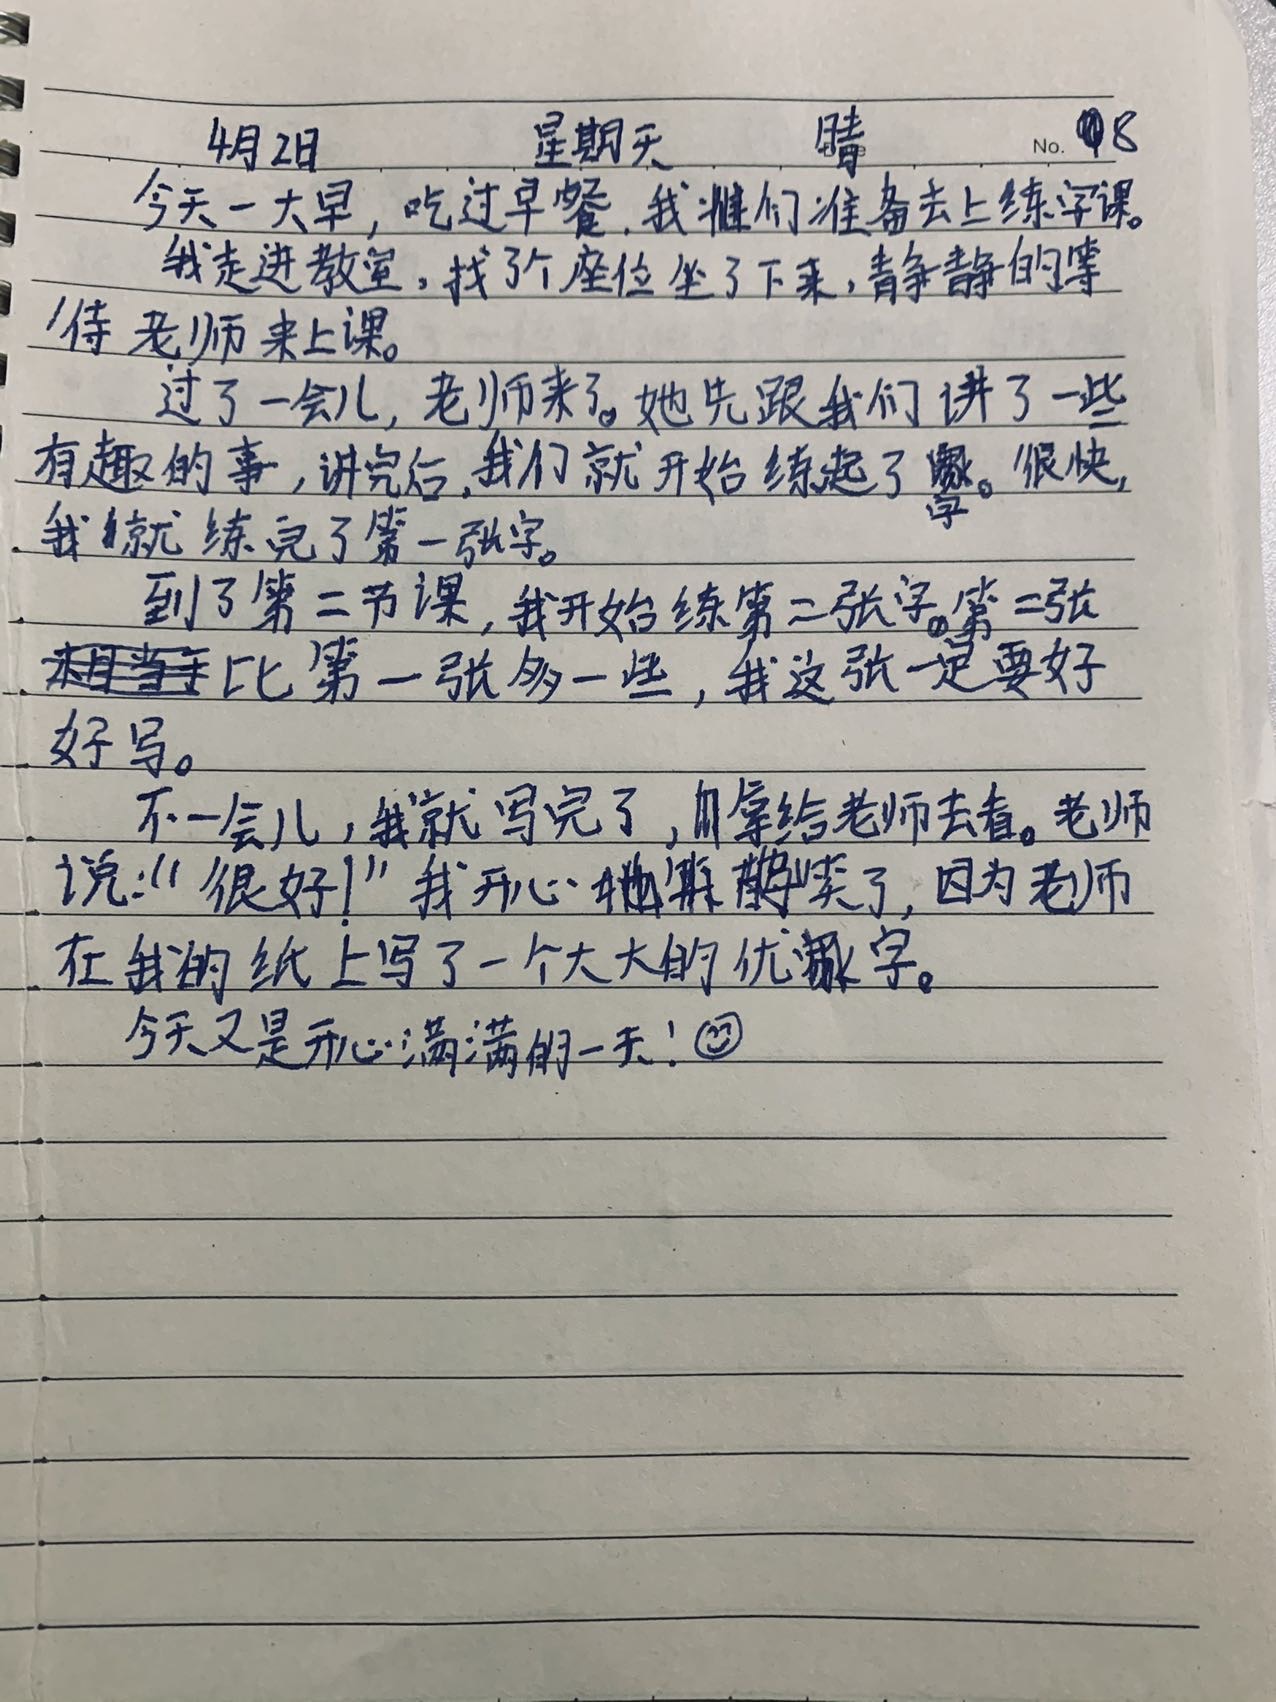 4月2日 星期天 晴 No. 8
今天一大早，吃过早餐，我们准备去上练字课。
我走进教室，找了个座位坐了下来，静静的等
待老师来上课。
过了一会儿，老师来了。她先跟我们讲了一些
有趣的事，讲完后，我们就开始练起了字。很快，
我就练完了第一张字。
到了第二节课，我开始练第二张字。第二张
比第一张多一些，我这张一定要好
好写。
不一会儿，我就写完了，拿给老师去看。老师
说：“很好！”我开心笑了，因为老师
在我的纸上写了一个大大的优字。
今天又是开心满满的一天！